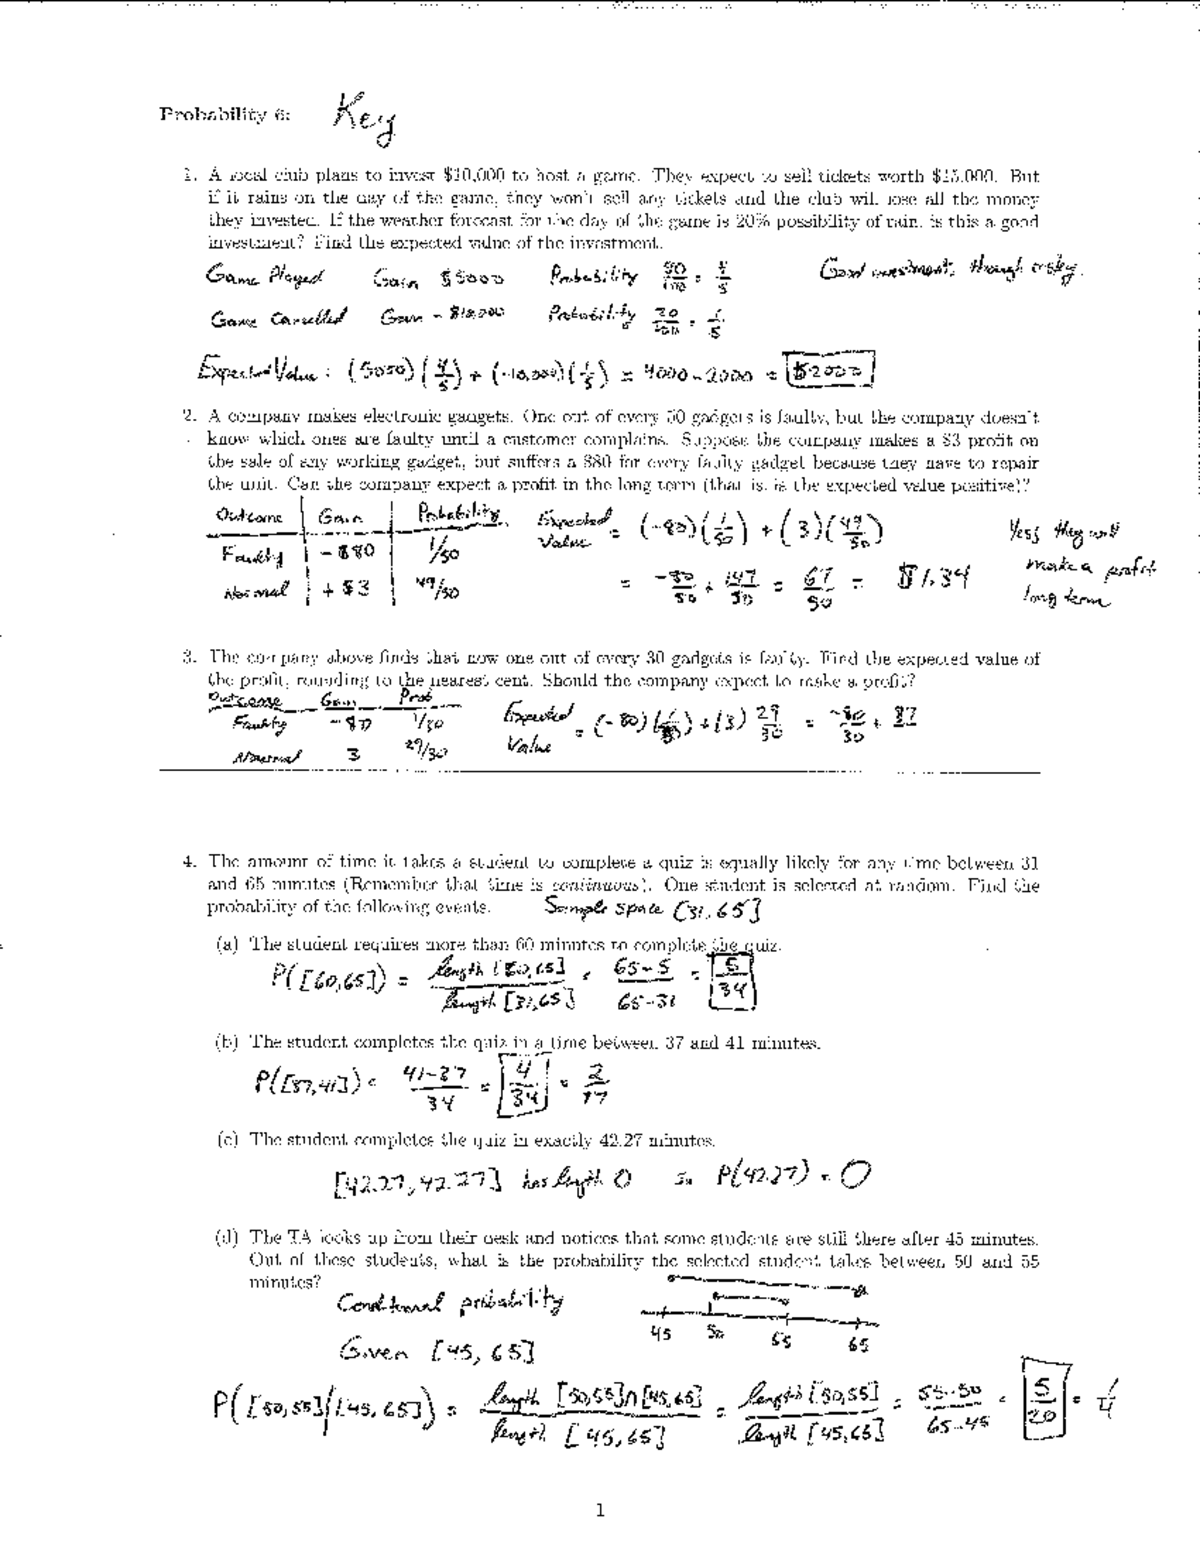 Probability 6: Key
1. A local club plans to invest $10,000 to host a game. They expect to sell tickets worth $15,000. But
if it rains on the day of the game, they won't sell any tickets and the club will lose all the money
they invested. If the weather forecast for the day of the game is 20% possibility of rain, is this a good
investment? Find the expected value of the investment.
Game Played Gain $5000 Probability 80/100 = 4/5 Good investment, through risky.
Game Cancelled Gain - $10,000 Probability 20/100 = 1/5
Expected Value: (5000)(4/5) + (-10,000)(1/5) = 4000 - 2000 = $2000
2. A company makes electronic gadgets. One out of every 50 gadgets is faulty, but the company doesn't
know which ones are faulty until a customer complains. Suppose the company makes a $3 profit on
the sale of any working gadget, but suffers a $80 for every faulty gadget because they have to repair
the unit. Can the company expect a profit in the long term (that is, is the expected value positive)?
Outcome Gain Probability Expected Value = (-80)(1/50) + (3)(49/50) Yes, they will
Faulty - $80 1/50 make a profit
Normal + $3 49/50 = -80/50 + 147/50 = 67/50 = $1.34 long term
3. The company above finds that now one out of every 30 gadgets is faulty. Find the expected value of
the profit, rounding to the nearest cent. Should the company expect to make a profit?
Outcome Gain Prob
Faulty -80 1/30 Expected Value = (-80)( ) + (3) 29/30 = -80/30 + 87
Normal 3 29/30
4. The amount of time it takes a student to complete a quiz is equally likely for any time between 31
and 65 minutes (Remember that time is continuous). One student is selected at random. Find the
probability of the following events. Sample space [31,65]
(a) The student requires more than 60 minutes to complete the quiz.
P([60,65]) = length [60,65] / length [31,65] = 65-5 / 65-31 = 5/34
(b) The student completes the quiz in a time between 37 and 41 minutes.
P([37,41]) = 41-37 / 34 = 4/34 = 2/17
(c) The student completes the quiz in exactly 42.27 minutes.
[42.27, 42.27] has length 0 so P(42.27) = 0
(d) The TA looks up from their desk and notices that some students are still there after 45 minutes.
Out of these students, what is the probability the selected student takes between 50 and 55
minutes?
Conditional probability
45 50 55 65
Given [45, 65]
P([50,55]/[45,65]) = length [50,55]∩[45,65] / length [45,65] = length [50,55] / length [45,65] = 55-50 / 65-45 = 5/20 = 1/4
1